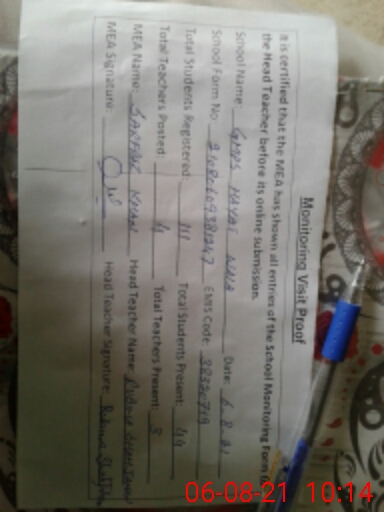 Monitoring Visit Proof
It is certified that the MEA has shown all entries of the School Monitoring Form to
the Head Teacher before its online submission.
School Name: GMPS HAYAT Date: 6.8.21
School Form No: EMIS Code:
Total Students Registered: 111 Total Students Present: 44
Total Teachers Posted: 4 Total Teachers Present: 3
MEA Name: SARFRAZ KHAN Head Teacher Name: RUBINA
MEA Signature: Head Teacher Signature: Rubina
06-08-21 10:14